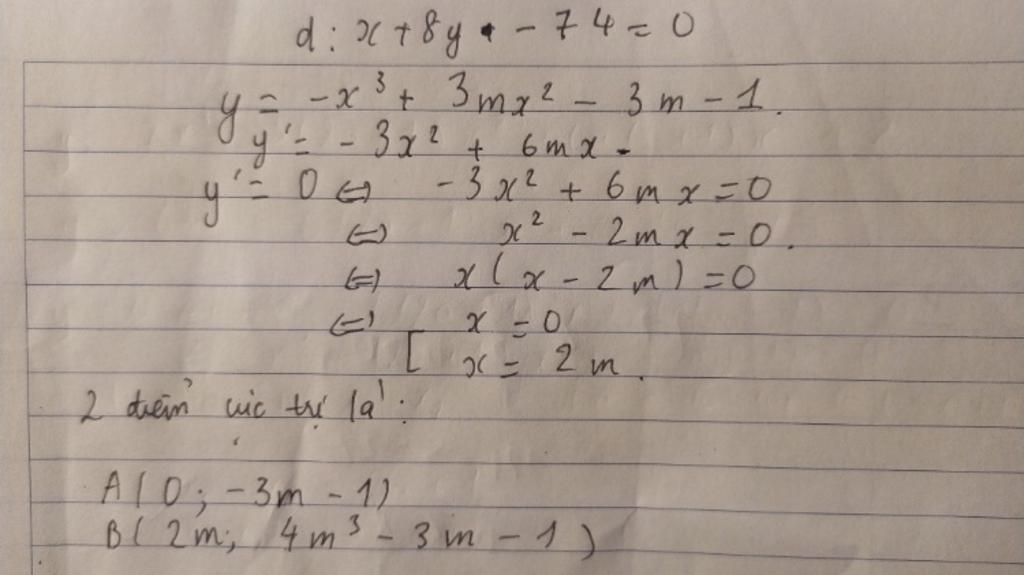 d: x + 8y - 74 = 0
y = -x³ + 3mx² - 3m - 1.
y' = -3x² + 6mx.
y' = 0 ⇔ -3x² + 6mx = 0
⇔ x² - 2mx = 0.
⇔ x(x - 2m) = 0
⇔ [ x = 0
x = 2m.
2 điểm cực trị là:
A(0; -3m - 1)
B(2m; 4m³ - 3m - 1)